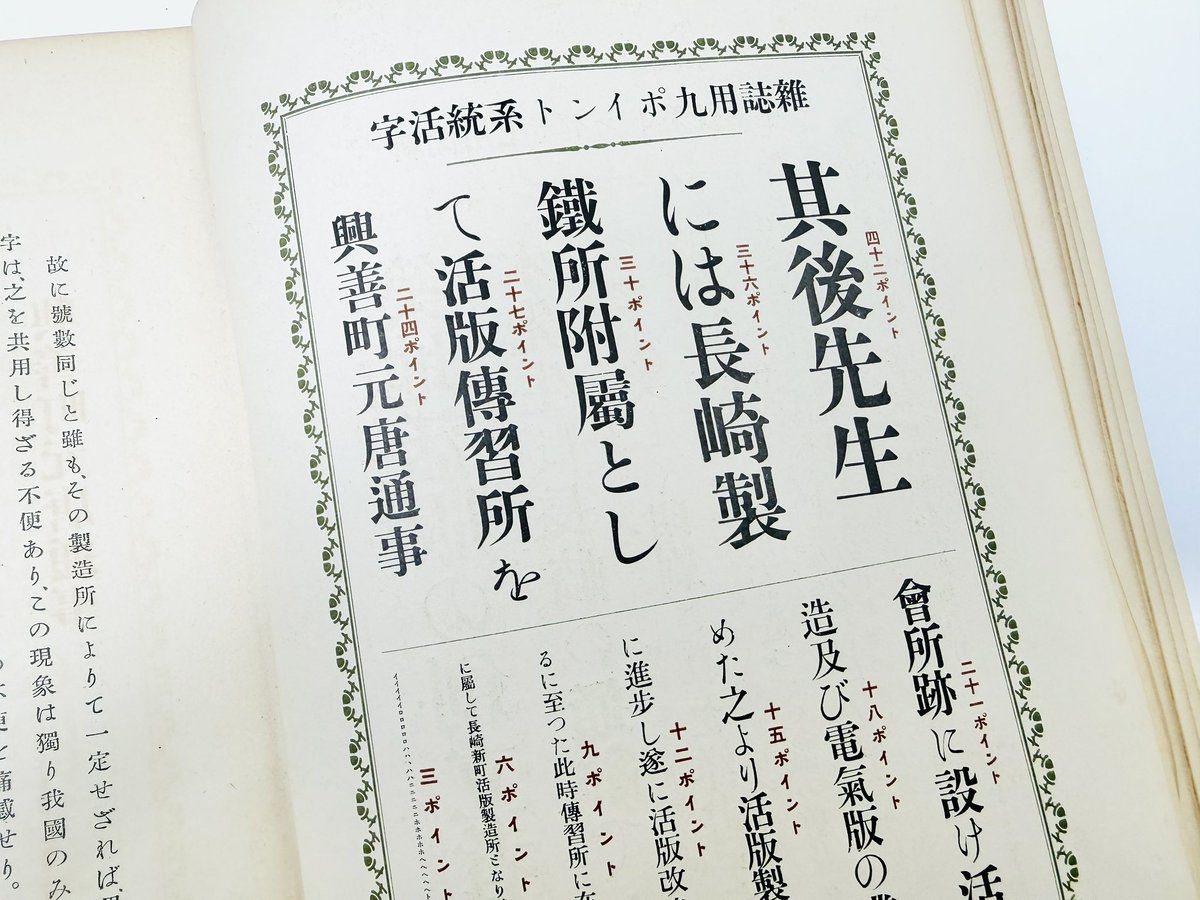 雜誌用九ポイント系統活字
四十二ポイント
其後先生
三十六ポイント
には長崎製
三十ポイント
鐵所附屬とし
二十七ポイント
て活版傳習所を
二十四ポイント
興善町元唐通事
二十一ポイント
會所跡に設け活
十八ポイント
造及び電氣版の
十五ポイント
めた之より活版製
十二ポイント
に進歩し遂に活版改
九ポイント
るに至つた此時傳習所に在
六ポイント
に屬して長崎新町活版製造所となり
三ポイント
故に號數同じと雖も、その製造所によりて一定せざれば、
字は、之を共用し得ざる不便あり、この現象は獨り我國のみ
痛感せり。